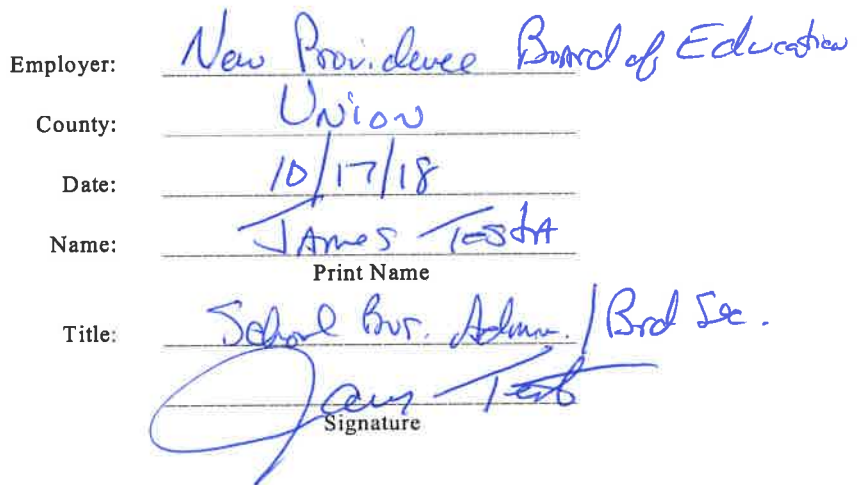 Employer: New Providence Board of Education
County: Union
Date: 10/17/18
Name: James Testa
Print Name
Title: School Bus. Admin. / Brd Sec.
James Testa
Signature